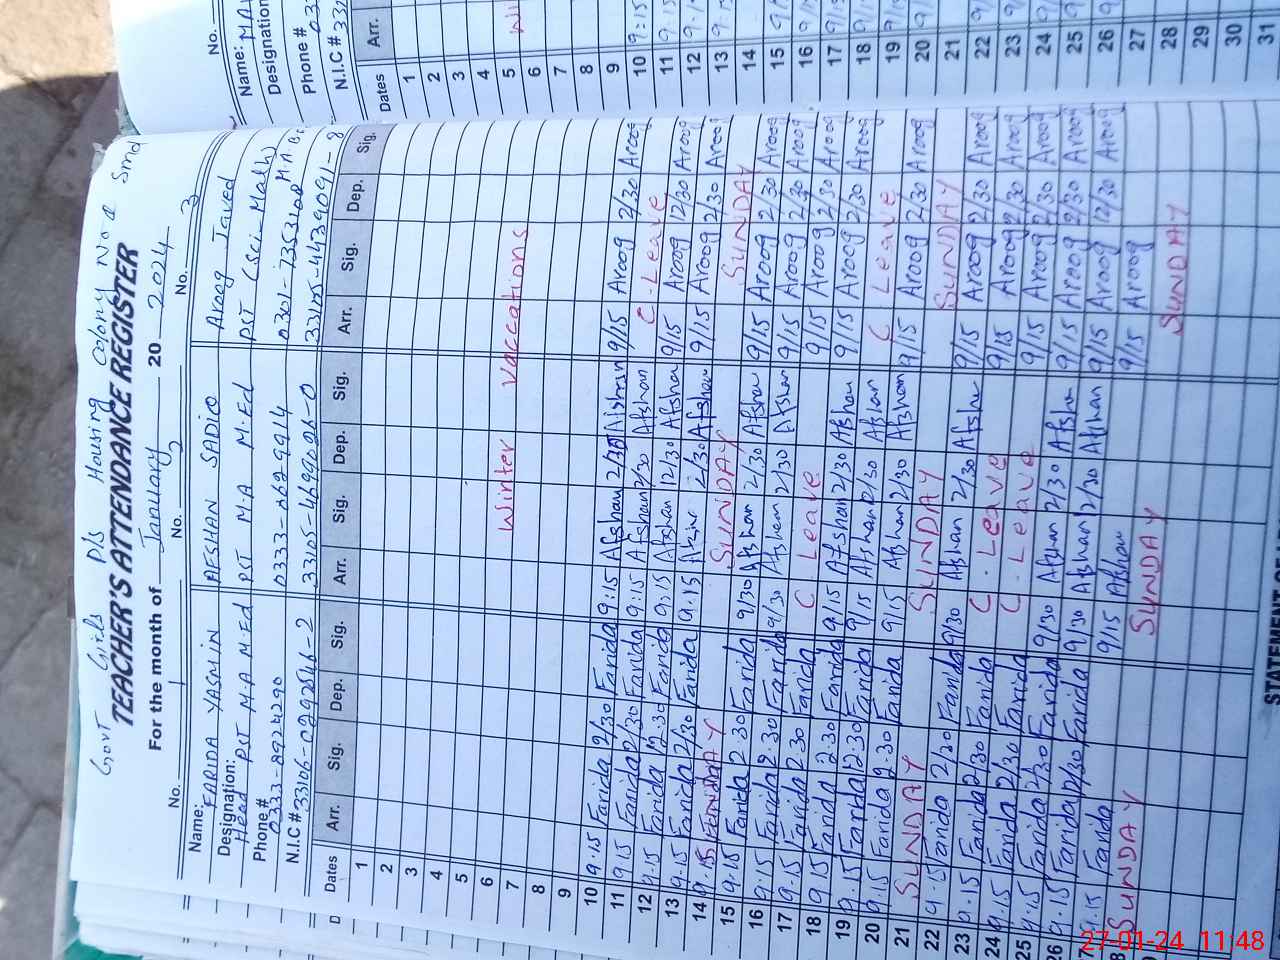 Govt Girls P/S Housing Colony No 2 Smd
TEACHER'S ATTENDANCE REGISTER
For the month of January 2024
No. 1 No. 2 No. 3
Name: FARIDA YASMIN AFSHAN SADIQ Aroog Javed
Designation: Head PST M.A M.Ed PST M.A M.Ed PST (Sci-Math)
Phone # 0333-8924290 0333-0629914
N.I.C # 33105-4699026-0 33105-4439091-8
Dates Arr. Sig. Dep. Sig. Arr. Sig. Dep. Sig. Arr. Sig. Dep. Sig.
1
2
3
4
5
6
7 Winter Vaccations
8
9
10 9.15 Farida 2/30 Farida 9:15 Afshan 2/30 Afshan 9/15 Aroog 2/30 Aroog
11 9.15 Farida 2/30 Farida 9:15 Afshan 2/30 Afshan C. Leave
12 9.15 Farida 12.30 Farida 9:15 Afshan 12/30 Afshan 9/15 Aroog 12/30 Aroog
13 9.15 Farida 2/30 Farida 9.15 2/30 Afshan 9/15 Aroog 2/30 Aroog
14 SUNDAY SUNDAY SUNDAY
15 9.15 Farida 2.30 Farida 9/30 Afshan 2/30 Afshan 9/15 Aroog 2/30 Aroog
16 9.15 Farida 2.30 Farida 9/30 Afshan 2/30 Afshan 9/15 Aroog 2/30 Aroog
17 9.15 Farida 2.30 Farida C Leave 9/15 Aroog 2/30 Aroog
18 9.15 Farida 2.30 Farida 9/15 Afshan 2/30 Afshan 9/15 Aroog 2/30 Aroog
19 9.15 Farida 12.30 Farida 9/15 Afshan 12/30 Afshan C Leave
20 9.15 Farida 2.30 Farida 9/15 Afshan 2/30 Afshan 9/15 Aroog 2/30 Aroog
21 SUNDAY SUNDAY SUNDAY
22 9.15 Farida 2/30 Farida 9/30 Afshan 2/30 Afshan 9/15 Aroog 2/30 Aroog
23 9.15 Farida 2/30 Farida C. Leave 9/15 Aroog 2/30 Aroog
24 9.15 Farida 2/30 Farida C. Leave 9/15 Aroog 2/30 Aroog
25 9.15 Farida 2/30 Farida 9/30 Afshan 2/30 Afshan 9/15 Aroog 2/30 Aroog
26 9.15 Farida 12/30 Farida 9/30 Afshan 12/30 Afshan 9/15 Aroog 12/30 Aroog
27 9.15 Farida 9/15 Afshan 9/15 Aroog
SUNDAY SUNDAY SUNDAY
No.
Name:
Designation
Phone #
N.I.C #
Dates Arr.
1
2
3
4
5
6
7
8
9
10 9:15
11
12
13
14
15
16
17
18
19
20
21
22
23
24
25
26
27
28
29
30
31
27-01-24 11:48